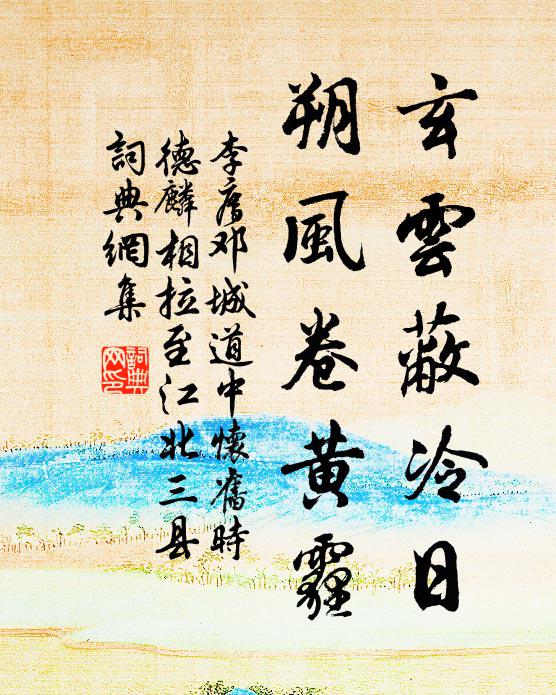 玄雲蔽冷日
朔風卷黄霾
李廌邓城道中懷舊時
德麟相拉至江北三县
詞典網集
詞典
网印